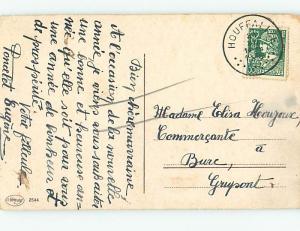 Bien chère marraine,
A l'occasion de la nouvelle
année je viens vous souhaiter
une bonne et heureuse an-
née qu'elle soit pour vous
une année de bonheur et
de prospérité.
Votre filleule
HOUFFALI
Madame Elisa
Commerçante
à
Bure,
Grupont.
2544